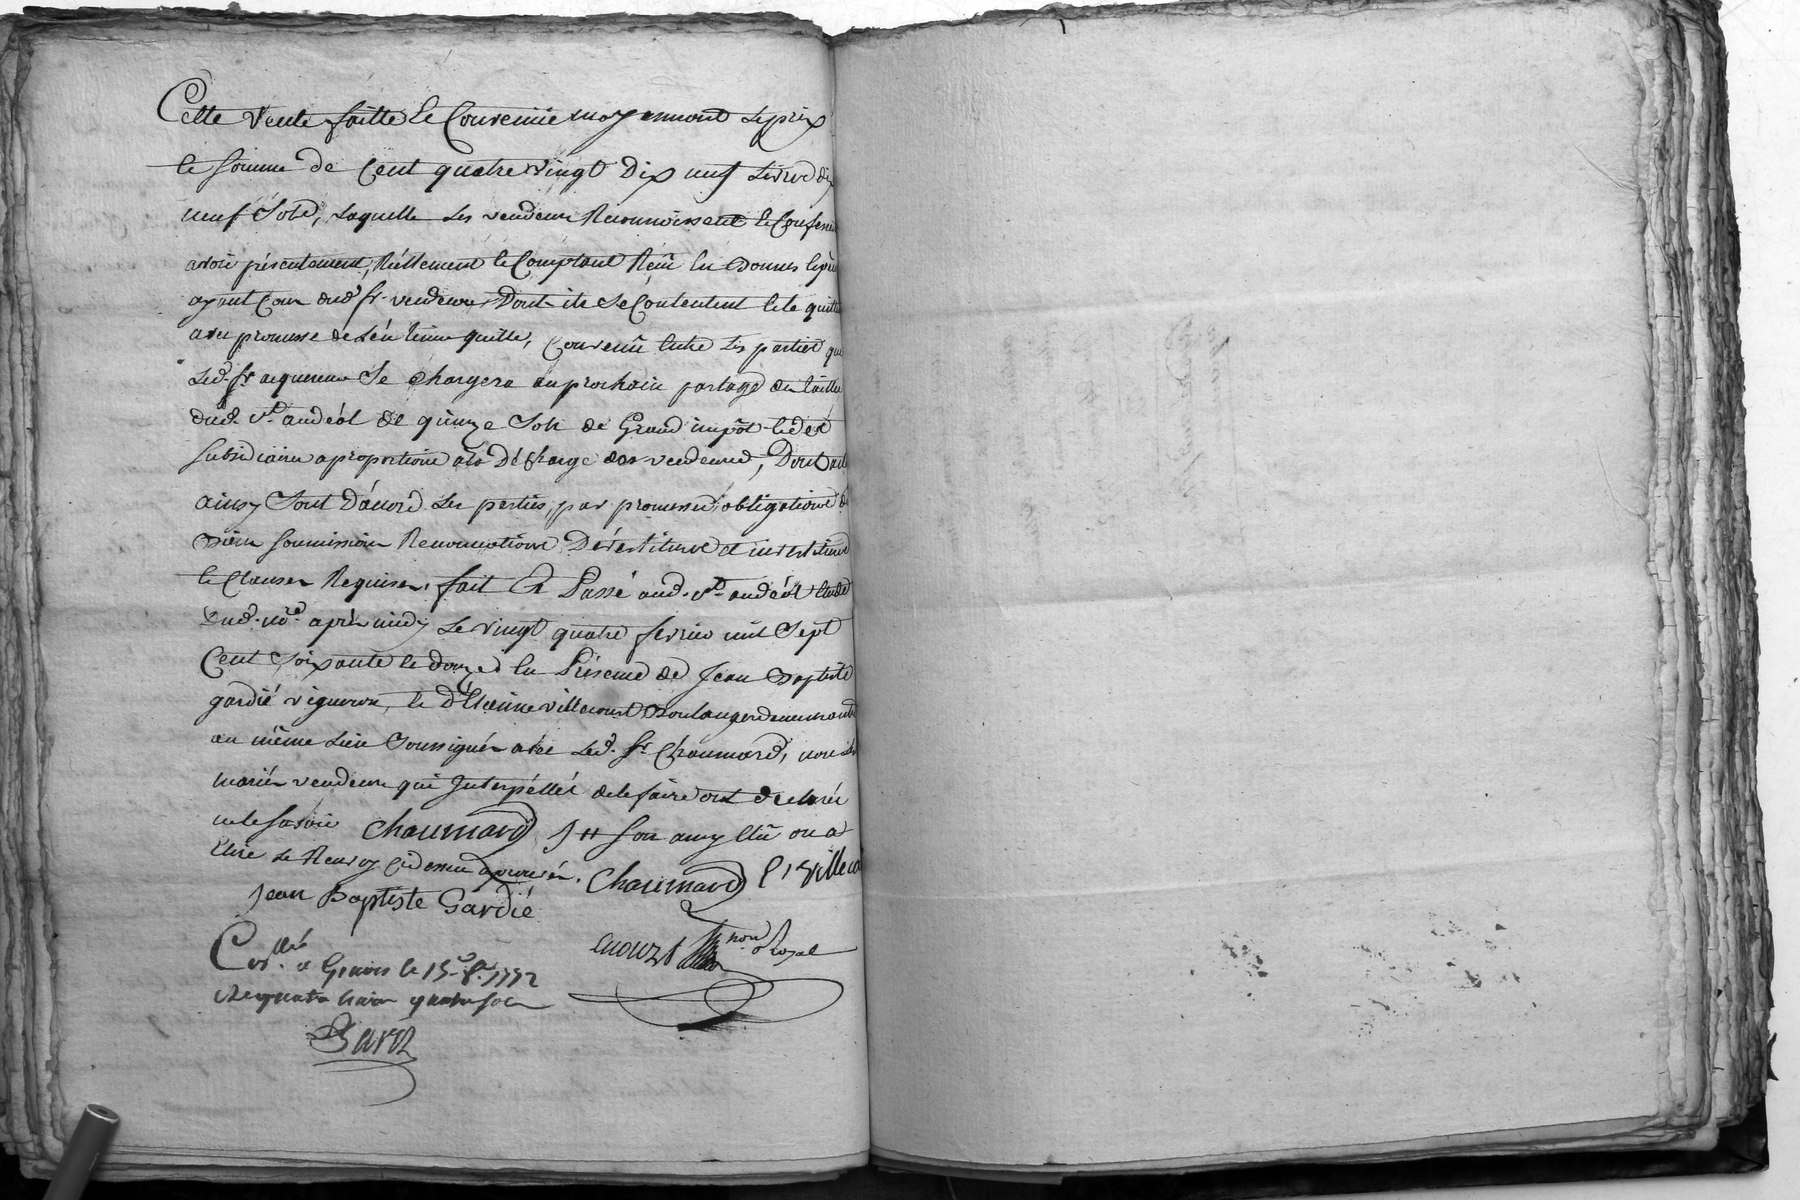 Cette vente faitte et Convenüe moyennant le prix
et somme de Cent quatre vingt Dix neuf Livres dix
neuf Sols, Laquelle Les vendeurs Reconnoissent et Confessent
avoir présentement, Réellement et Comptant Reçüe
ayant Cour dud. Sr. vendeurs Dont ils se Contentent et le quitte
avec promesse de L'en tenir quitte, Convenû entre Les parties que
Led. Sr acquereur Se Chargera au prochain partage des tailles
dud. St. andéol de quinze Sols de Grand impôt et des
subsidiaires a proportion à la Décharge des vendeurs, Dont
ainsy Sont D'accord Les parties, par promesses, obligations de
Biens Soumissions Renonciations Dévestiture et investiture
et Clauses Requises, fait Et Passé aud. St. andéol Etude
dud. nore. après midy Le vingt quatre fevrier mil Sept
Cent Soixante et douze En Présence de Jean Baptiste
gardié vigneron, et d'Etienne villecourt Boulanger demeurants
au même Lieu Soussignés avec Led. Sr. Chaumard, non Les
mariés vendeurs qui Interpéllés de le faire ont declarés
ne le Savoir Chaumard
Elire Le Renvoy Cidessus approuvés. Chaumard
Jean Baptiste Gardié
nore Royal
Corllé. a Givors le 1772